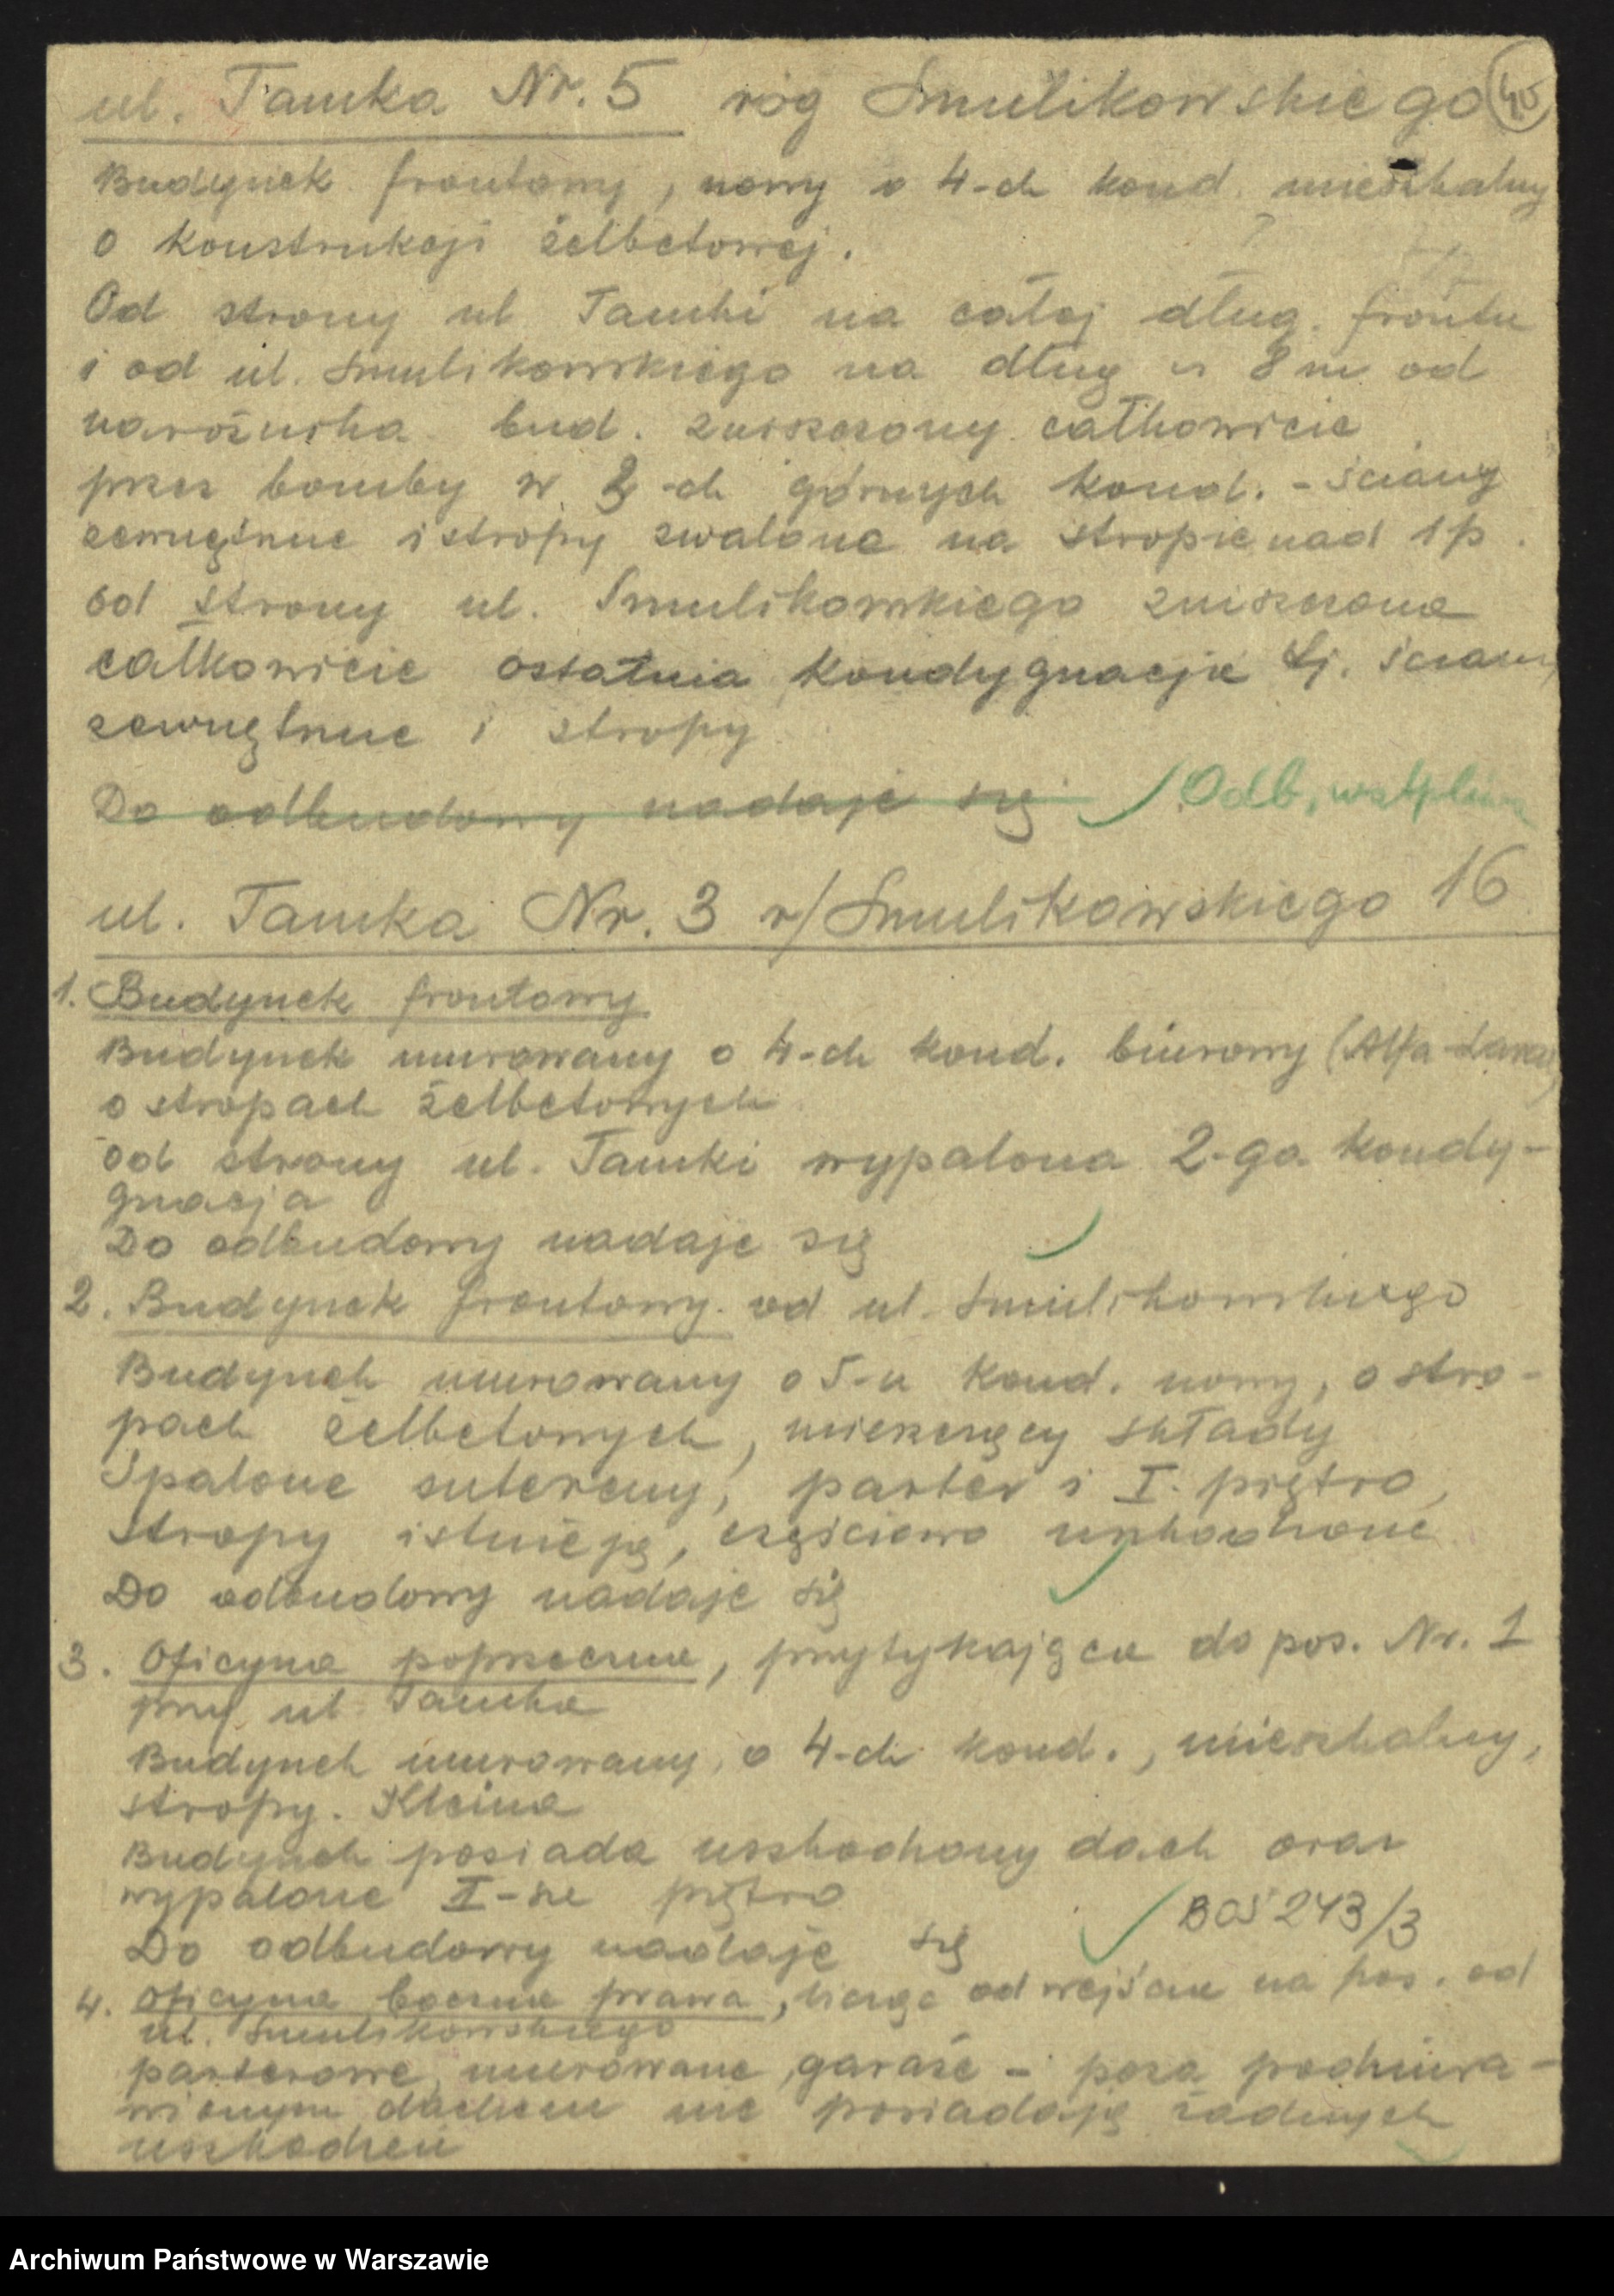 ul. Tamka Nr. 5 róg Smulikowskiego
Budynek frontowy, nowy o 4-ch kond. mieszkalny
o konstrukcji żelbetowej.
Od strony ul Tamki na całej dług. frontu
i od ul. Smulikowskiego na dług 8 m od
narożnika bud. zniszczony całkowicie
przez bomby w 2-ch górnych kond. - ściany
zewnętrzne i stropy zwalone na stropie nad 1 p.
od strony ul. Smulikowskiego zniszczona
całkowicie ostatnia kondygnacja tj. ściany
zewnętrzne i stropy
Do odbudowy nadaje się Odb.
ul. Tamka Nr. 3 r/Smulikowskiego 16
1. Budynek frontowy
Budynek murowany o 4-ch kond. biurowy (Alfa-Laval)
o stropach żelbetowych
od strony ul. Tamki wypalona 2-ga kondy-
gnacja
Do odbudowy nadaje się
2. Budynek frontowy od ul. Smulikowskiego
Budynek murowany o 5-u kond. nowy, o stro-
pach żelbetowych, mieszczący składy
Spalone sutereny, parter i I. piętro,
stropy istnieją, częściowo uszkodzone
Do odbudowy nadaje się
3. Oficyna poprzeczna, przytykająca do pos. Nr. 1
przy ul Tamka
Budynek murowany, o 4-ch kond., mieszkalny,
stropy. Kleina
Budynek posiada uszkodzony dach oraz
wypalone II-ie piętro
Do odbudowy nadaje się BOS 243/3
4. Oficyna boczna prawa, licząc od wejścia na pos. od
ul. Smulikowskiego
parterowe, murowane garaże - poza podziura-
wionym dachem nie posiadają żadnych
uszkodzeń
Archiwum Państwowe w Warszawie